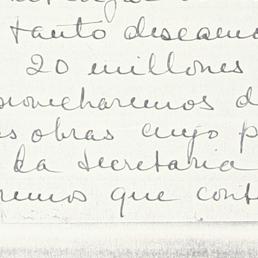 tanto deseamo
20 millones
provecharemos d
s obras cuyo p
la Secretaria
remos que cont